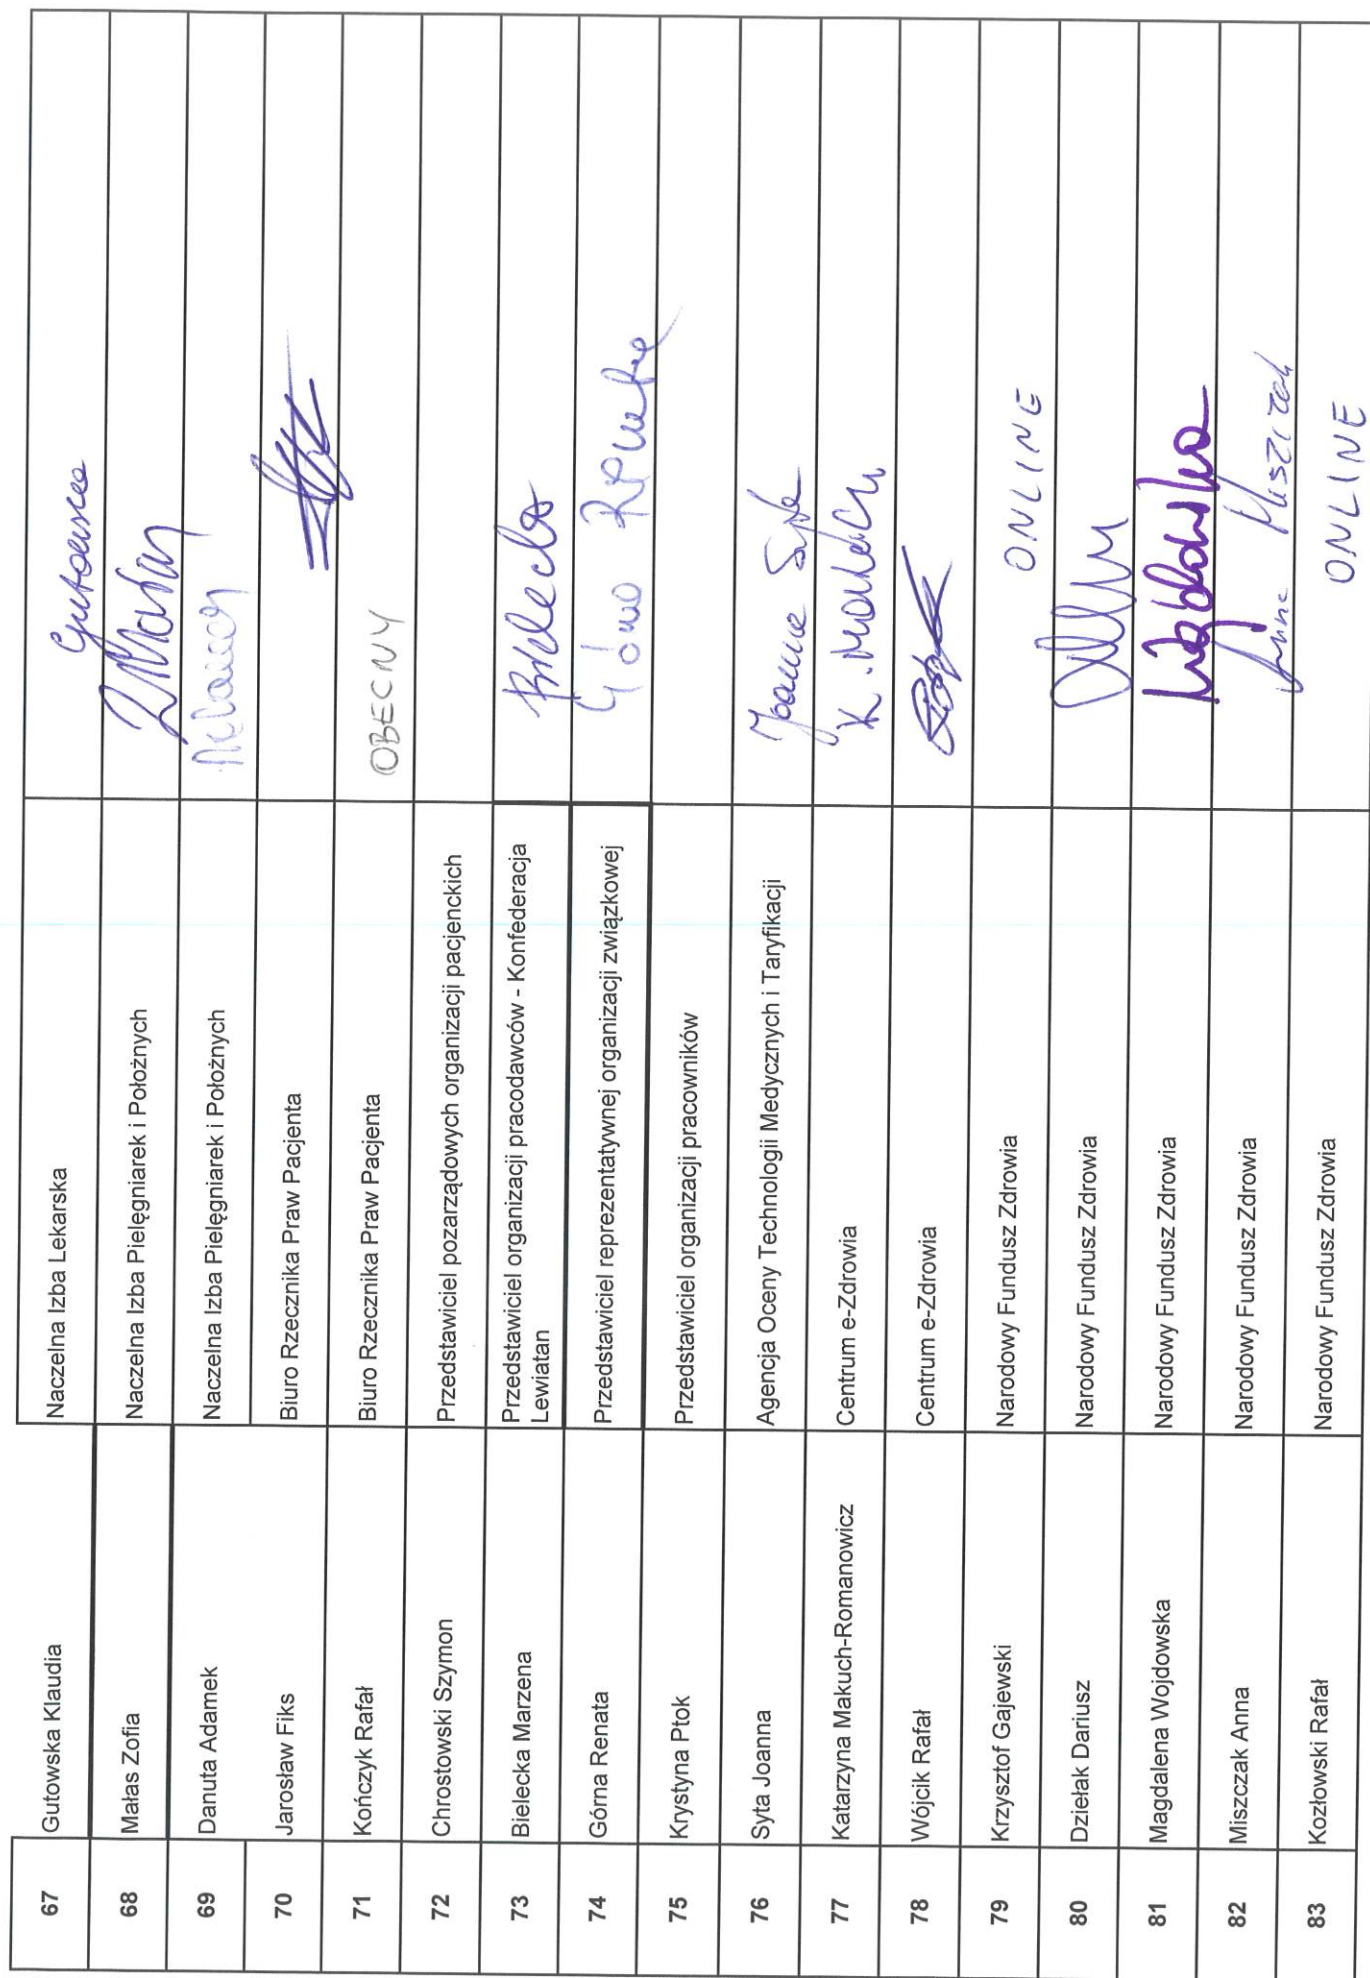 67 Gutowska Klaudia Naczelna Izba Lekarska Gutowska
68 Małas Zofia Naczelna Izba Pielęgniarek i Położnych ZMałas
69 Danuta Adamek Naczelna Izba Pielęgniarek i Położnych
70 Jarosław Fiks Biuro Rzecznika Praw Pacjenta
71 Kończyk Rafał Biuro Rzecznika Praw Pacjenta OBECNY
72 Chrostowski Szymon Przedstawiciel pozarządowych organizacji pacjenckich
73 Bielecka Marzena Przedstawiciel organizacji pracodawców - Konfederacja
Lewiatan
74 Górna Renata Przedstawiciel reprezentatywnej organizacji związkowej Górna Renata
75 Krystyna Ptok Przedstawiciel organizacji pracowników
76 Syta Joanna Agencja Oceny Technologii Medycznych i Taryfikacji Joanna Syta
77 Katarzyna Makuch-Romanowicz Centrum e-Zdrowia K. Makuch
78 Wójcik Rafał Centrum e-Zdrowia
79 Krzysztof Gajewski Narodowy Fundusz Zdrowia ONLINE
80 Dziełak Dariusz Narodowy Fundusz Zdrowia
81 Magdalena Wojdowska Narodowy Fundusz Zdrowia
82 Miszczak Anna Narodowy Fundusz Zdrowia Anna Miszczak
83 Kozłowski Rafał Narodowy Fundusz Zdrowia ONLINE